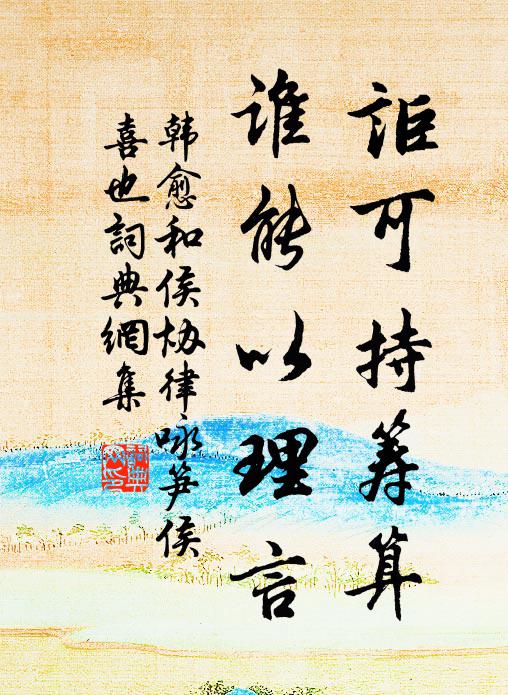 詎可持筭算
誰能以理言
韩愈和侯协律咏笋侯
喜也詞典網集